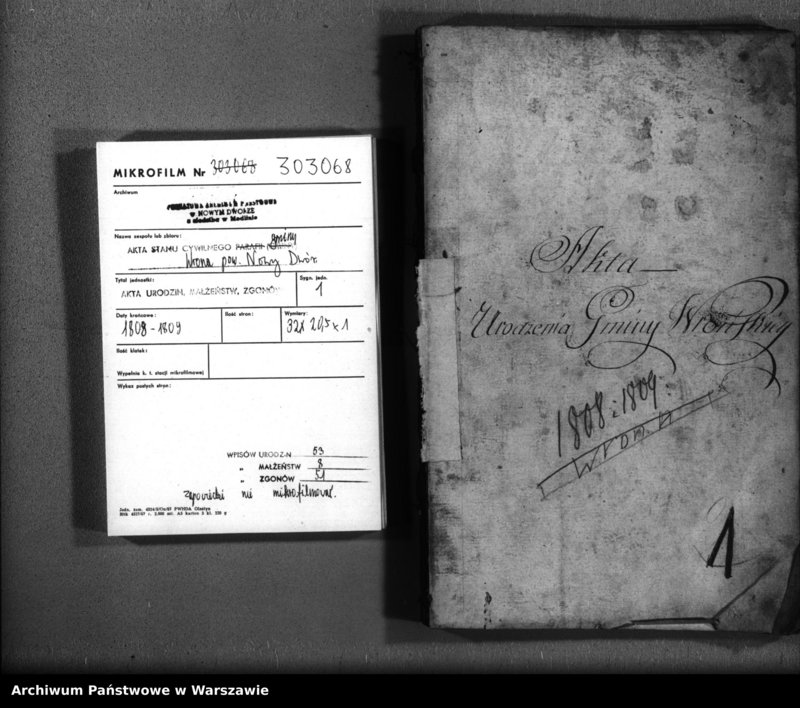 MIKROFILM Nr 303068 303068
Archiwum
w NOWYM DWORZE
z siedzibą w Modlinie
Nazwa zespołu lub zbioru:
AKTA STANU CYWILNEGO PARAFII gminy
Wrona pow. Nowy Dwór
Tytuł jednostki:
AKTA URODZIN, MAŁŻEŃSTW, ZGONÓW
Sygn. jedn.
1
Daty krańcowe:
1808-1809
Ilość stron:
Wymiary:
32x 20,5 x 1
Ilość klatek:
Wypełnia k. t. stacji mikrofilmowej
Wykaz pustych stron:
WPISÓW URODZIN 53
„ MAŁŻEŃSTW 8
„ ZGONÓW 51
zapowiedzi nie mikrofilmować.
Akta
Urodzenia Gminy Wrońskiey
1808 i 1809.
Wrona
1
Archiwum Państwowe w Warszawie